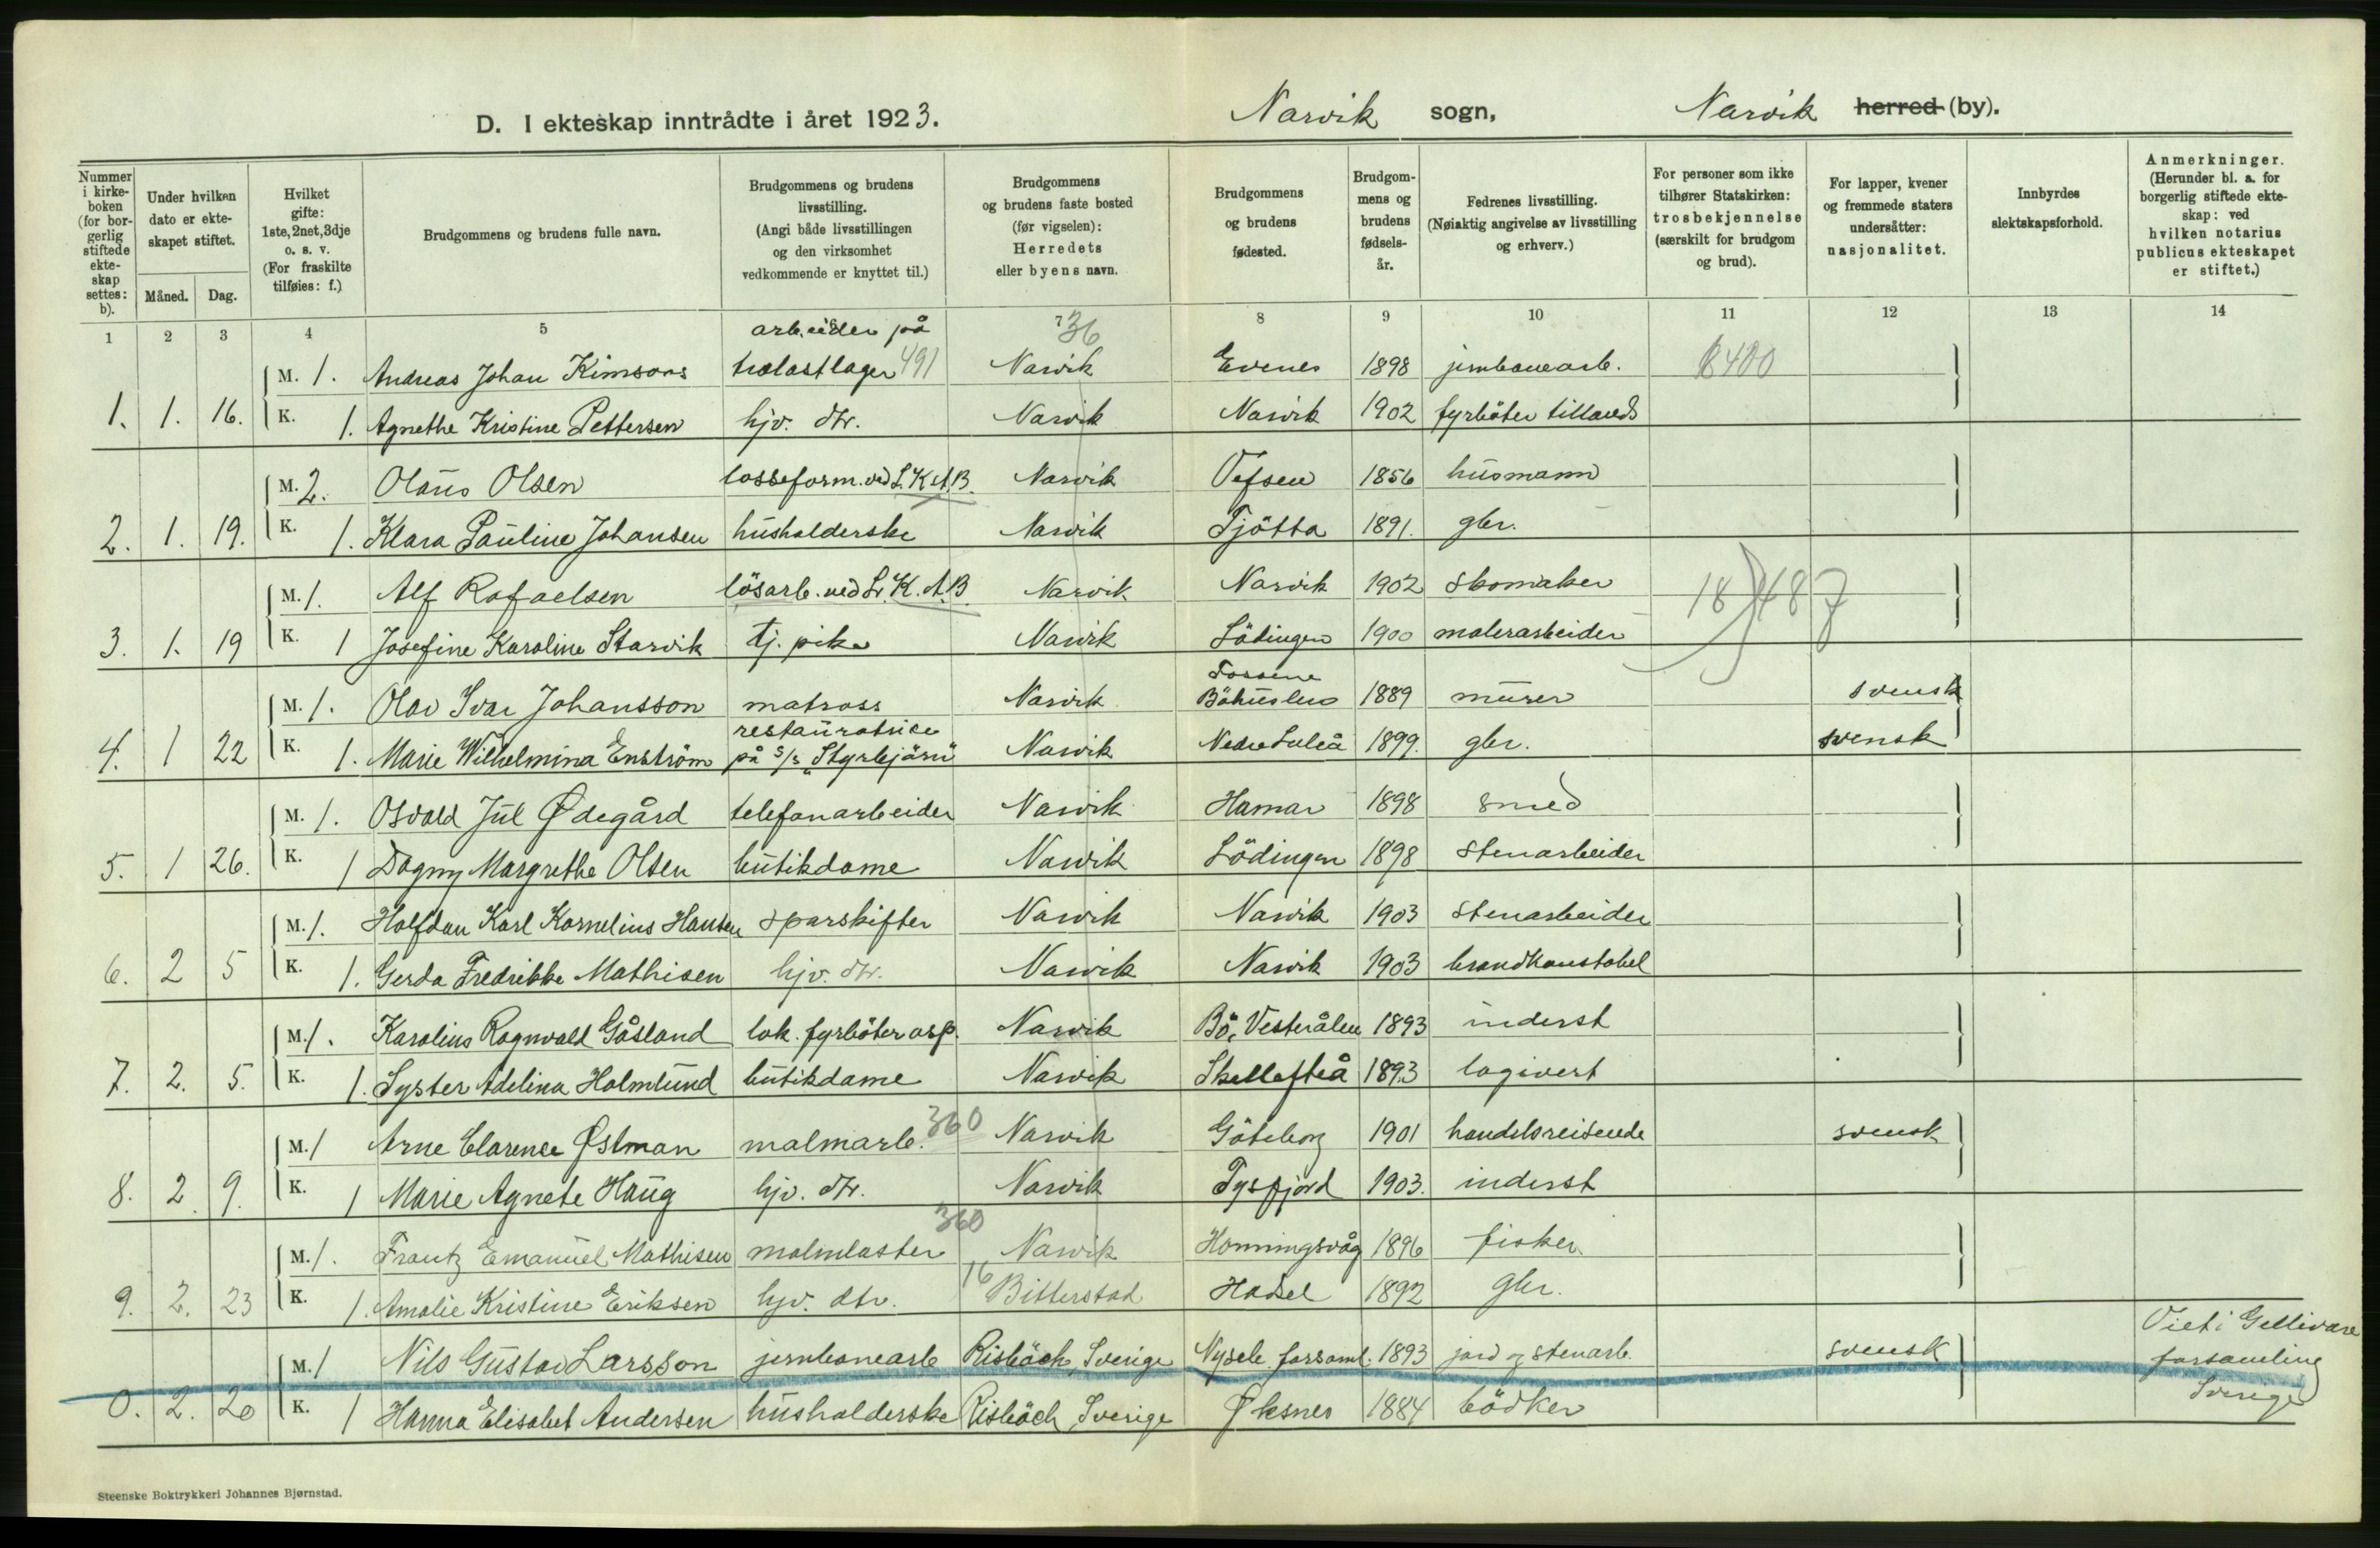 D. I ekteskap inntrådte i året 1923.
Narvik sogn,
Narvik herred (by).
Nummer i kirkeboken (for borgerlig stiftede ekteskap settes: b).
Under hvilken dato er ekteskapet stiftet.
Måned.
Dag.
Hvilket gifte: 1ste, 2net, 3dje o. s. v. (For fraskilte tilføies: f.)
Brudgommens og brudens fulle navn.
Brudgommens og brudens livsstilling. (Angi både livsstillingen og den virksomhet vedkommende er knyttet til.)
Brudgommens og brudens faste bosted (før vigselen): Herredets eller byens navn.
Brudgommens og brudens fødested.
Brudgommens og brudens fødselsår.
Fedrenes livsstilling. (Nøiaktig angivelse av livsstilling og erhverv.)
For personer som ikke tilhører Statskirken: trosbekjennelse (særskilt for brudgom og brud).
For lapper, kvener og fremmede staters undersåtter: nasjonalitet.
Innbyrdes slektskapsforhold.
Anmerkninger. (Herunder bl. a. for borgerlig stiftede ekteskap: ved hvilken notarius publicus ekteskapet er stiftet.)
1 2 3 4 5 7 8 9 10 11 12 13 14
arbeider på 36
M. 1. Andreas Johan Kimsaas trelastlager 491 Narvik Evenes 1898 jernbanearb. 8400
1. 1. 16. K. 1. Agnethe Kristine Pettersen hjv. dtr. Narvik Narvik 1902 fyrböter tillands
M. 2. Olaus Olsen losseform. ved L.K.A.B. Narvik Vefsen 1856 husmann
2. 1. 19. K. 1. Klara Pauline Johansen husholderske Narvik Tjötta 1891. gbr.
M. 1. Alf Rafaelsen lösarb. ved L.K.A.B. Narvik Narvik 1902 skomaker 18 487
3. 1. 19 K. 1 Josefine Karoline Starvik tj. pike Narvik Lödingen 1900 malerarbeider
Fossene
M. 1. Olav Ivar Johansson matross Narvik Båhuslen 1889 murer svensk
restauratrice
4. 1 22 K. 1. Marie Wilhelmina Enström på s/s "Styrbjörn" Narvik Nedre Luleå 1899. gbr. svensk
M. 1. Osvald Jul Ødegård telefonarbeider Narvik Hamar 1898 smed
5. 1 26. K. 1 Dagny Margrethe Olsen butikdame Narvik Lödingen 1898 stenarbeider
M. 1. Halfdan Karl Kornelius Hansen sporskifter Narvik Narvik 1903 stenarbeider
6. 2 5 K. 1. Gerda Fredrikke Mathisen hjv. dtr. Narvik Narvik 1903 brandkonstabel
M. 1. Karolius Ragnvald Gåsland lok. fyrböter asp. Narvik Bö, Vesterålen 1893 inderst
7. 2. 5. K. 1. Syster Adelina Holmlund butikdame Narvik Skellefteå 1893 logivert
M. 1 Arne Clarence Østman malmarb. 360 Narvik Göteborg 1901 handelsreisende svensk
8. 2 9. K. 1 Marie Agnete Haug hjv. dtr. Narvik Tysfjord 1903. inderst
M. 1. Frantz Emanuel Mathisen malmlaster 360 Narvik Honningsvåg 1896 fisker
9. 2. 23 K. 1. Amalie Kristine Eriksen hjv. dtr. 16 Bitterstad Hadsel 1892 gbr.
M. 1 Nils Gustav Larsson jernbanearb Risbäck, Sverige Nysele forsaml. 1893 jord og stenarb. svensk Viet i Gellivare forsamling Sverige
0. 2. 20 K. 1 Hanna Elisabet Andersen husholderske Risbäck, Sverige Øksnes 1884 bödker
Steenske Boktrykkeri Johannes Bjørnstad.